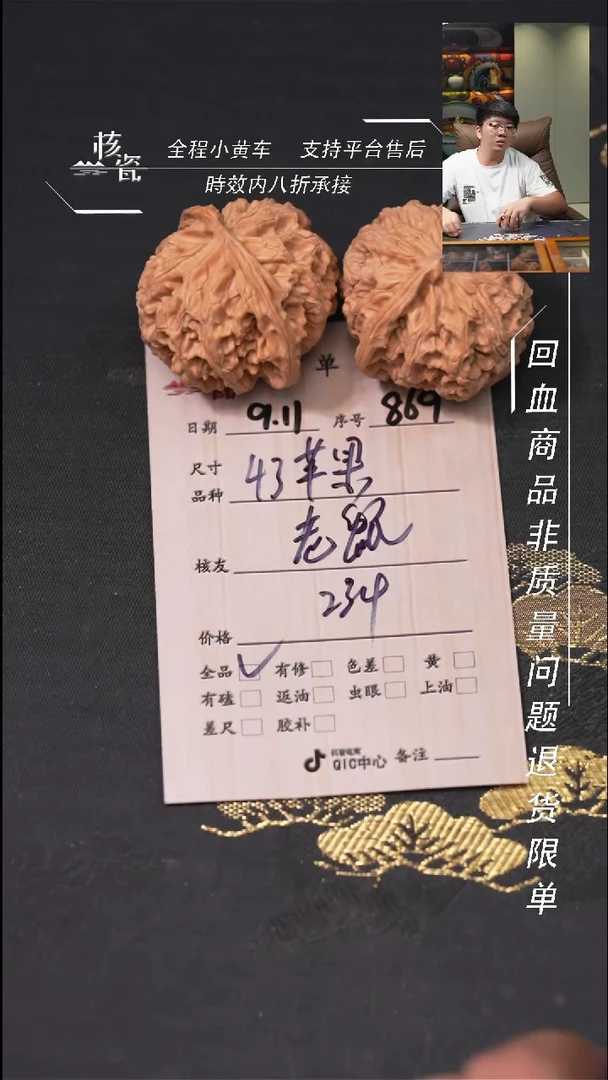 核瓷
全程小黄车 支持平台售后
時效内八折承接
回血商品非质量问题退货限单
单
日期 9.11 序号 869
尺寸
品种 43苹果
核友 老鼠
价格 234
全品 ✓ 有修 色差 黄
有磕 返油 虫眼 上油
差尺 胶补
抖音电商
QIC中心 备注